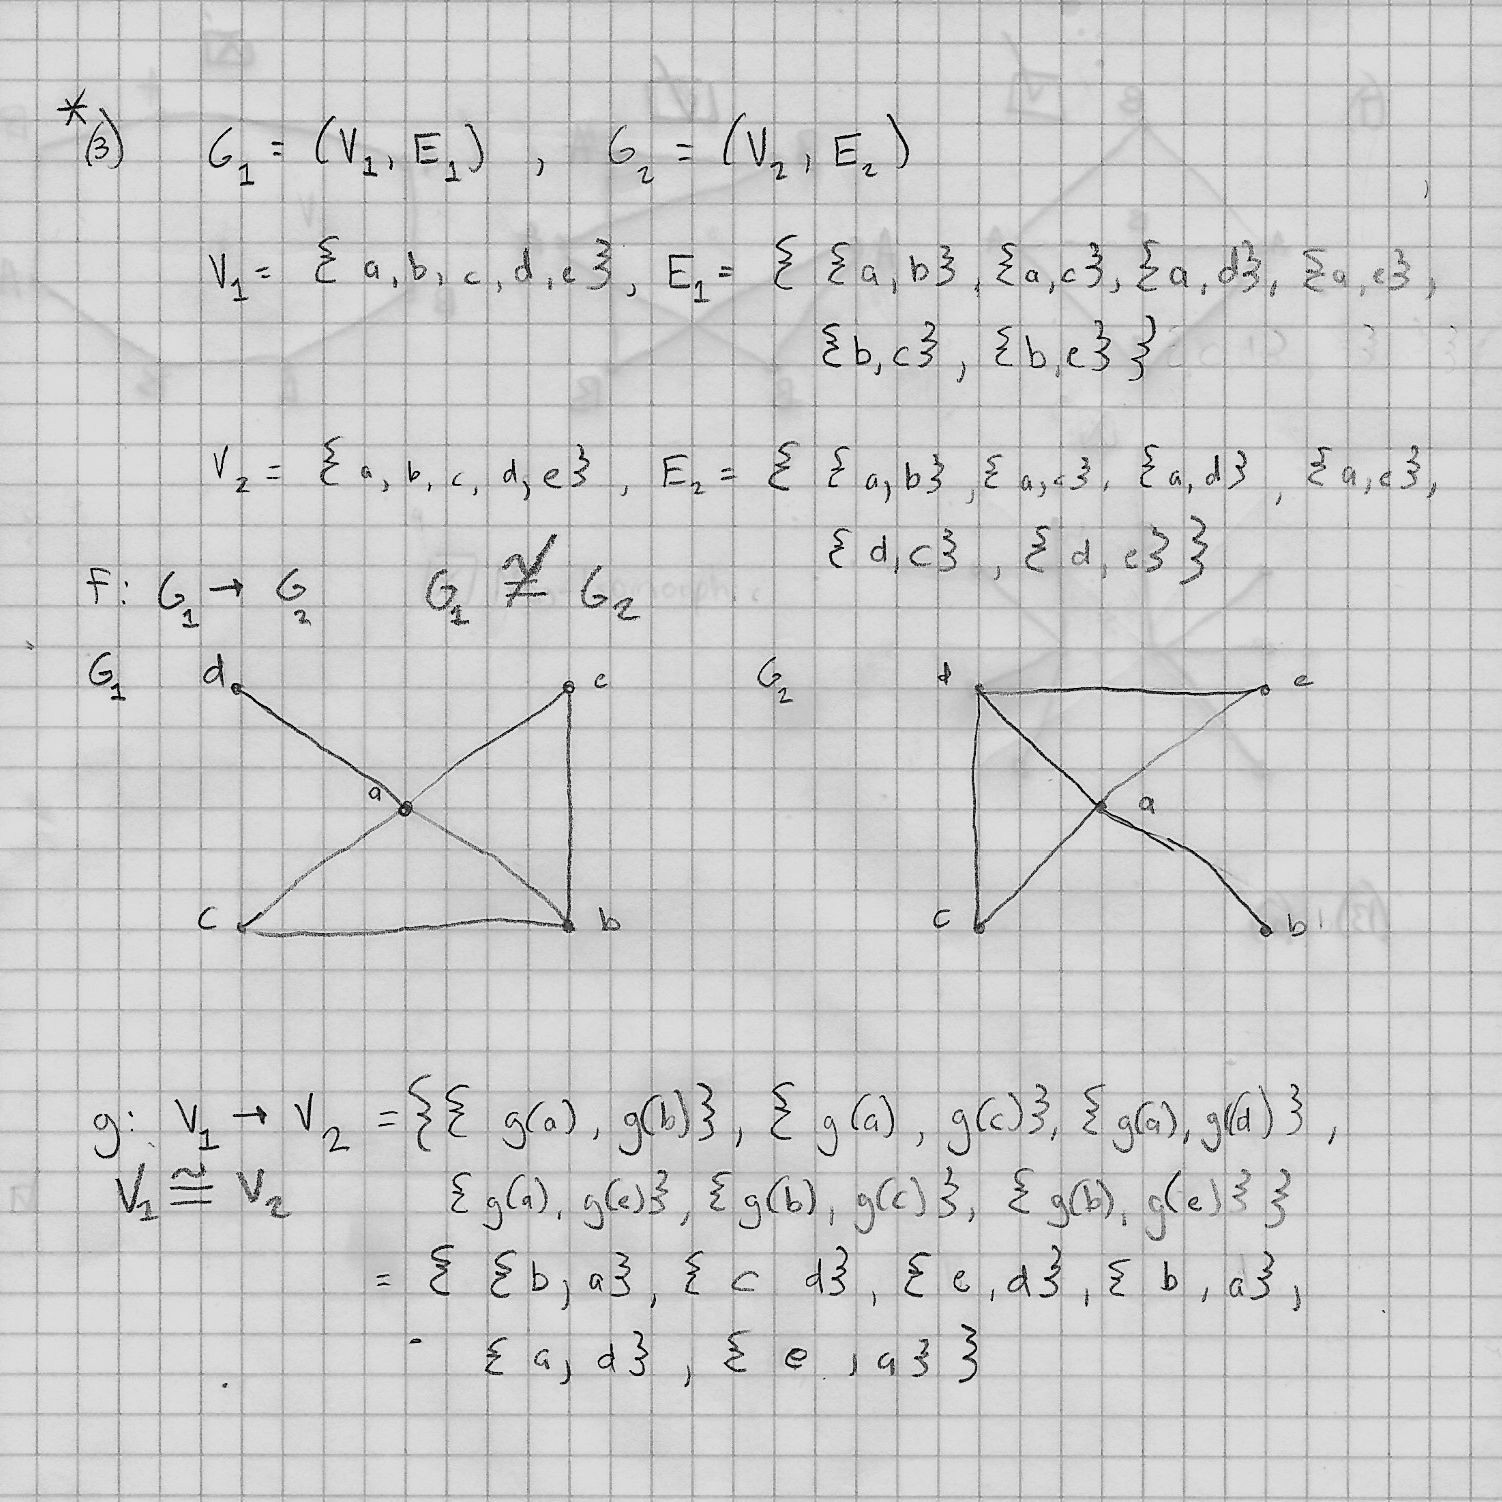 *(3) G₁ = (V₁, E₁) , G₂ = (V₂, E₂)
V₁ = { a, b, c, d, e }, E₁ = { {a, b}, {a, c}, {a, d}, {a, e},
{b, c}, {b, e} }
V₂ = { a, b, c, d, e }, E₂ = { {a, b}, {a, c}, {a, d}, {a, e},
{d, c}, {d, e} }
F: G₁ → G₂ G₁ ≇ G₂
G₁ d e G₂ d e
a a
c b c b
g: V₁ → V₂ = {{ g(a), g(b)}, { g(a), g(c)}, { g(a), g(d) },
V₁ ≅ V₂ { g(a), g(e)}, { g(b), g(c) }, { g(b), g(e) } }
= { { b, a}, { c d}, { e, d}, { b, a},
{ a, d}, { e, a} }